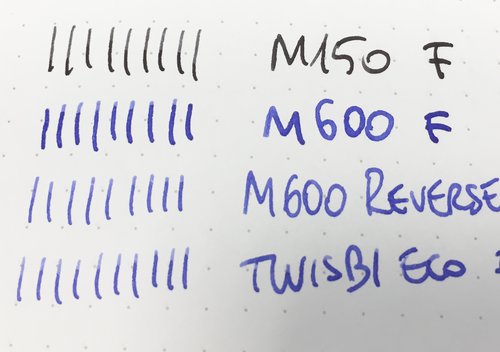 M150 F
M600 F
M600 REVERSE
TWISBI ECO